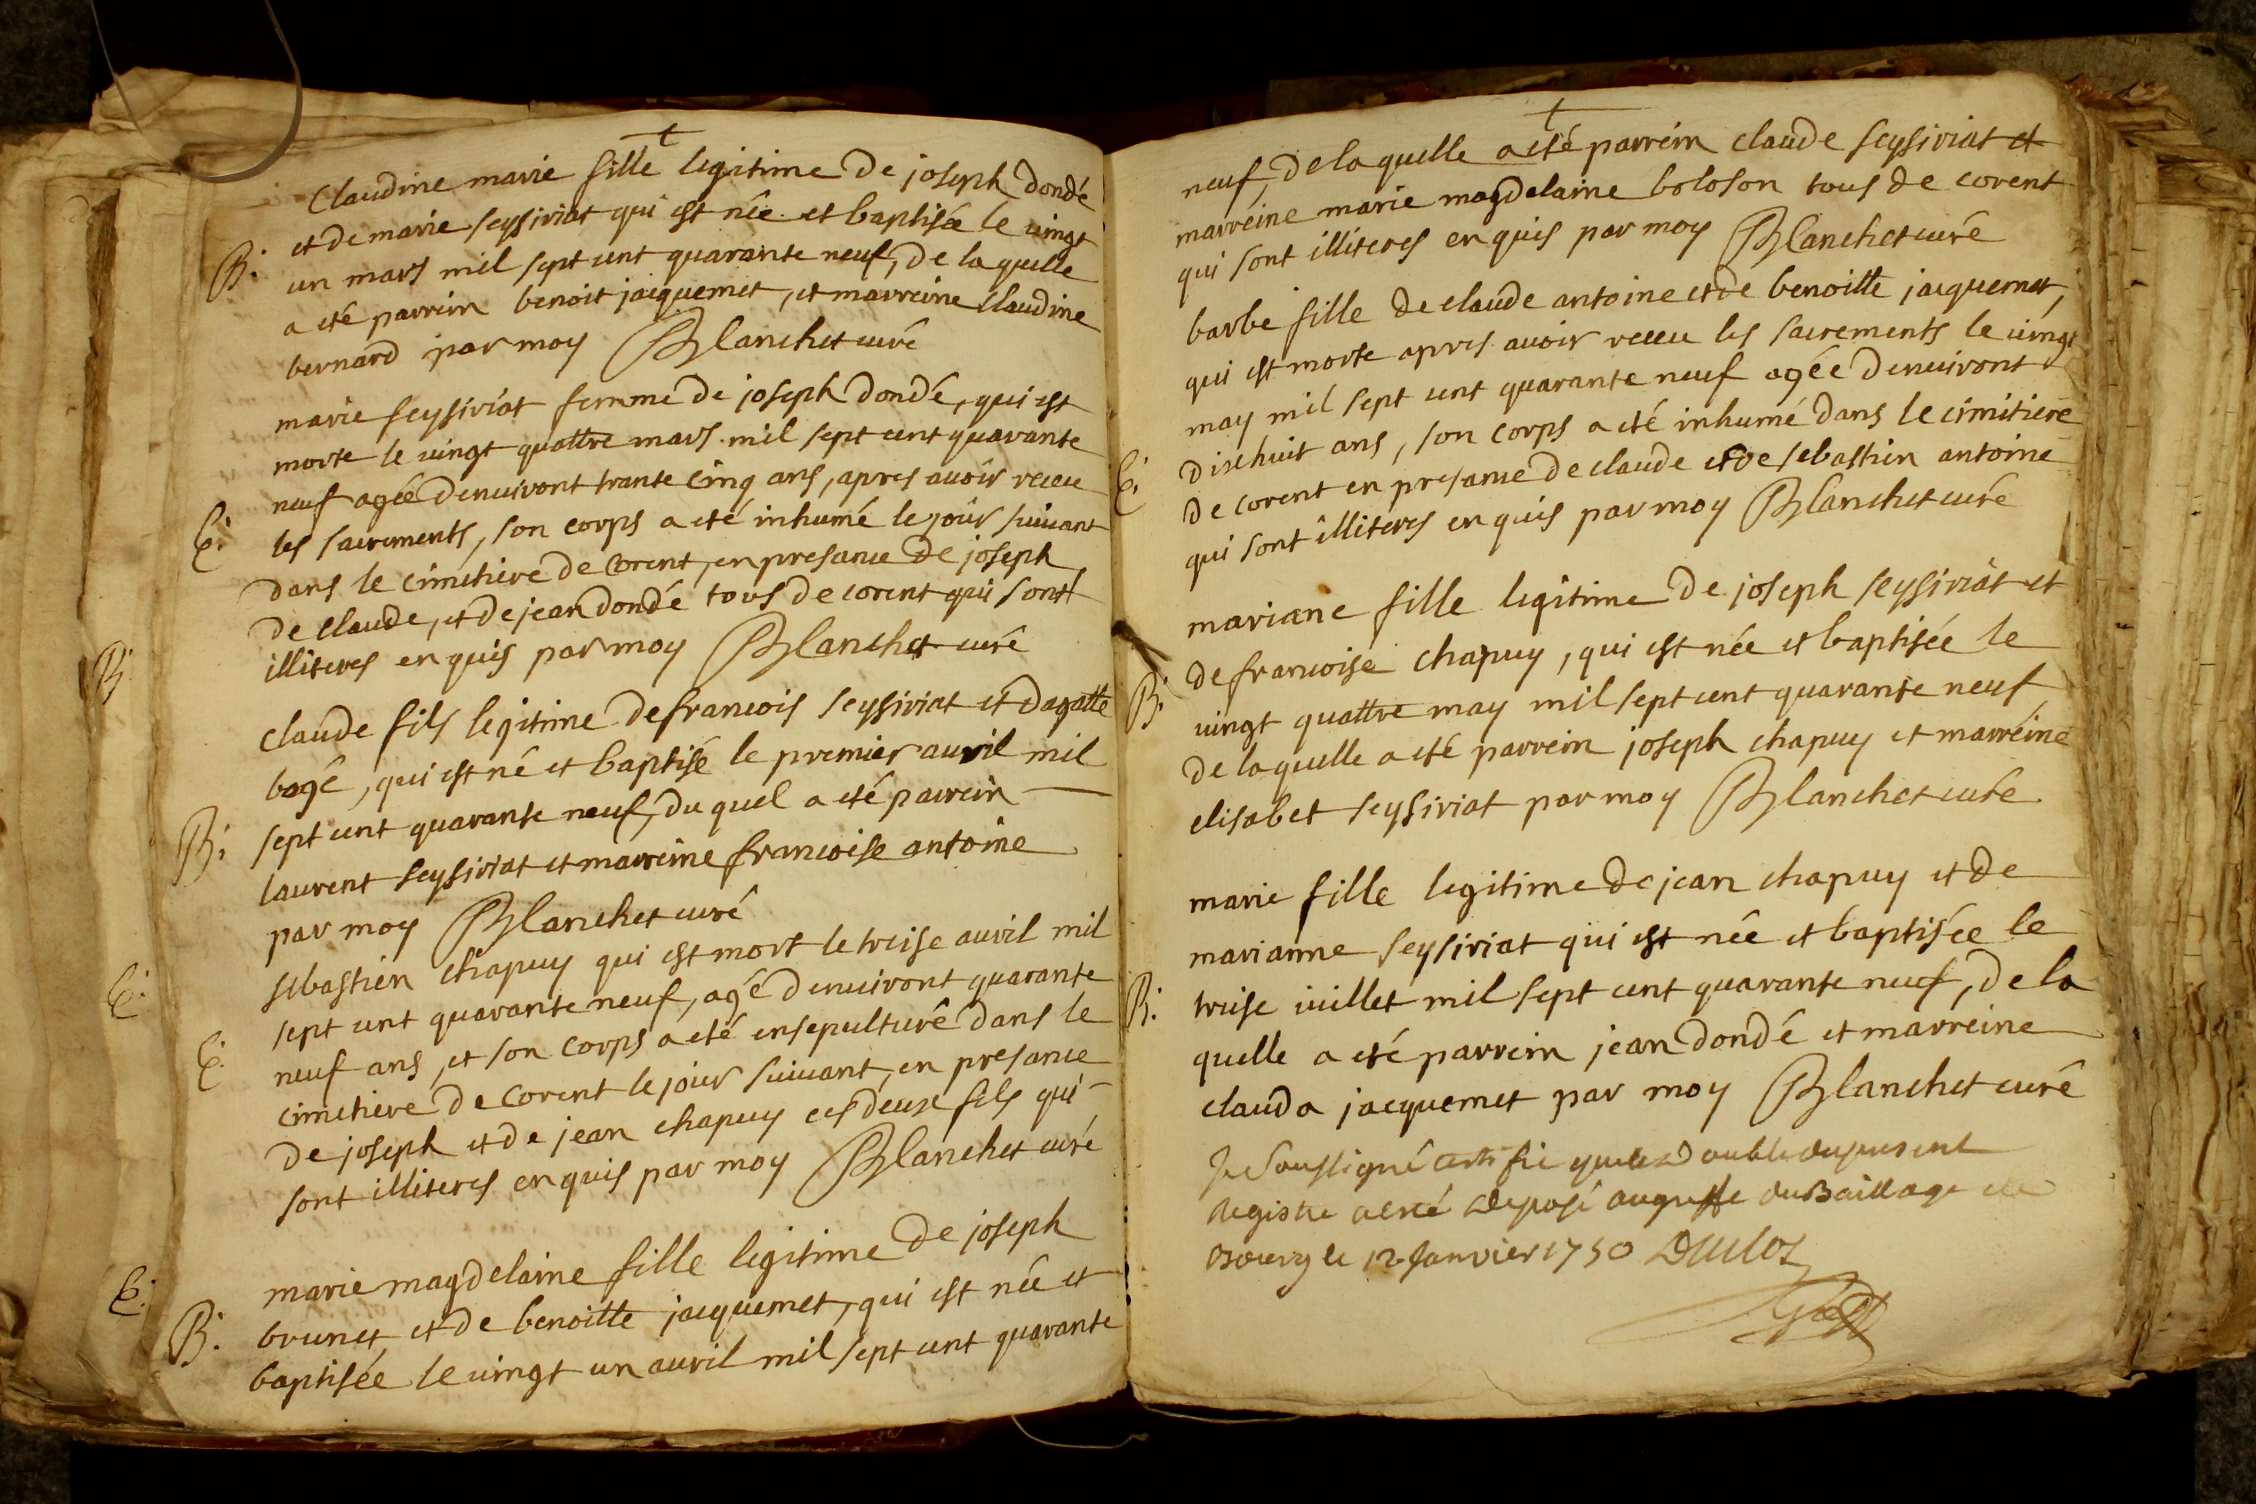 Claudine marie fille legitime de joseph dondé
et de marie seysiriat qui est née et baptisée le vingt
B: un mars mil sept cent quarante neuf, de laquelle
a eté parrein benoit jacquemet, et marreine claudine
bernard par moy Blanchet curé
marie seysiriat femme de joseph dondé, qui est
morte le vingt quattre mars mil sept cent quarante
neuf agée denviront trante cinq ans, apres avoir receu
E: les sacrements, son corps a eté inhumé le jour suivant
dans le cimetiere de corent, en presance de joseph
de claude, et de jean dondé tous de corent qui sont
illiteres enquis par moy Blanchet curé
claude fils legitime de francois seysiriat et dagatte
bogé, qui est né et baptisé le premier avril mil
B: sept cent quarante neuf, du quel a eté parrein
laurent seysiriat et marreine francoise antoine
par moy Blanchet curé
sebastien chapuy qui est mort le treise avril mil
sept cent quarante neuf, agé denviront quarante
E: neuf ans, et son corps a eté ensepulturé dans le
cimetiere de corent le jour suivant, en presance
de joseph et de jean chapuy ces deux fils qui
sont illiteres enquis par moy Blanchet curé
marie magdelaine fille legitime de joseph
B: brunet et de benoitte jacquemet, qui est née et
baptisée le vingt un avril mil sept cent quarante
B:
E:
E:
neuf, de laquelle a eté parrein claude seysiriat et
marreine marie magdelaine boloson tous de corent
qui sont illiteres enquis par moy Blanchet curé
barbe fille de claude antoine et de benoitte jacquemet,
qui est morte apres avoir receu les sacrements le vingt
may mil sept cent quarante neuf agée denviront
E: dixhuit ans, son corps a eté inhumé dans le cimitiere
de corent en presance de claude et de sebastien antoine
qui sont illiteres enquis par moy Blanchet curé
mariane fille legitime de joseph seysiriat et
de francoise chapuy, qui est née et baptisée le
B: vingt quattre may mil sept cent quarante neuf
de laquelle a eté parrein joseph chapuy et marreine
elisabet seysiriat par moy Blanchet curé
marie fille legitime de jean chapuy et de
marianne seysiriat qui est née et baptisée le
B: treise iuillet mil sept cent quarante neuf, de la
quelle a eté parrein jean dondé et marreine
clauda jacquemet par moy Blanchet curé
Je soussigné certifie que le double du present
Registre a esté deposé au greffe du Baillage de
Bourg le 12 Janvier 1750 Duclos